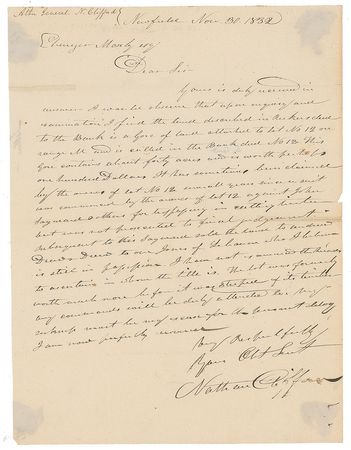 Attn General N. Clifford
Newfield Nov 30. 1832
Ebenezer Mosely Esq
Dear Sir
Yours is duly received in
answer I would observe that upon inquiry and
examination I find the land described in
to the Bank is a Gore of land attached to lot No 12 on
range M and is called in the Bank deed No 12 This
Gore contains about forty acres and is worth perhaps
one hundred Dollars It has sometimes been claimed
by the owners of lot No 12 several years since a suit
was commenced by the owners of lot 12 against John
Sayward & others for trespassing cutting timber
but was not prosecuted to final judgment
subsequent to this Sayward sold the same to Andrew
to one Jones of Lebanon who I believe
is still in possession I have not examined the
to ascertain in whom the title is. The lot was formerly
worth much more before it was stripped of its timber
my commands will be duly attended to my
sickness must be my excuse for the present delay
I am now perfectly
Very Respectfully
Yours Obt Servt
Nathan Clifford